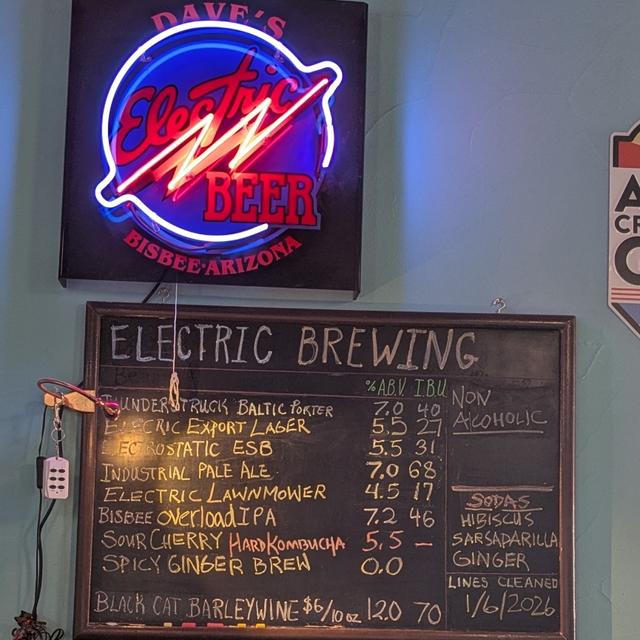 DAVE'S
Electric
BEER
BISBEE·ARIZONA
ELECTRIC BREWING
% A.B.V. I.B.U.
THUNDERSTRUCK BALTIC PORTER 7.0 40
ELECTRIC EXPORT LAGER 5.5 27
ELECTROSTATIC ESB 5.5 31
INDUSTRIAL PALE ALE 7.0 68
ELECTRIC LAWNMOWER 4.5 17
BISBEE OVERLOAD IPA 7.2 46
SOUR CHERRY HARD KOMBUCHA 5.5 —
SPICY GINGER BREW 0.0
BLACK CAT BARLEYWINE $6/10oz 12.0 70
NON
ALCOHOLIC
SODAS
HIBISCUS
SARSADARILLA
GINGER
LINES CLEANED
1/6/2026
A
CR